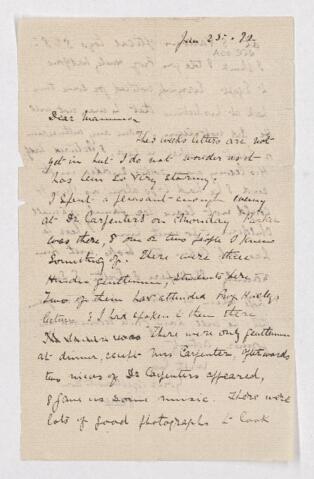 Jan 25. 82
Dear Mamma
This weeks letters are not
yet in but I do not wonder as it
has been so very stormy.
I spent a pleasant enough evening
at Dr Carpenters on Thursday
was there, & one or two people I knew
something of. There were three
Hindoo gentlemen, students here
Two of them has attended Prof Huxleys
lectures & I had spoken to them there
There were only gentlemen
at dinner, except Mrs Carpenter, afterwards
two nieces of Dr Carpenters appeared,
& gave us some music. There were
lots of good photographs to look